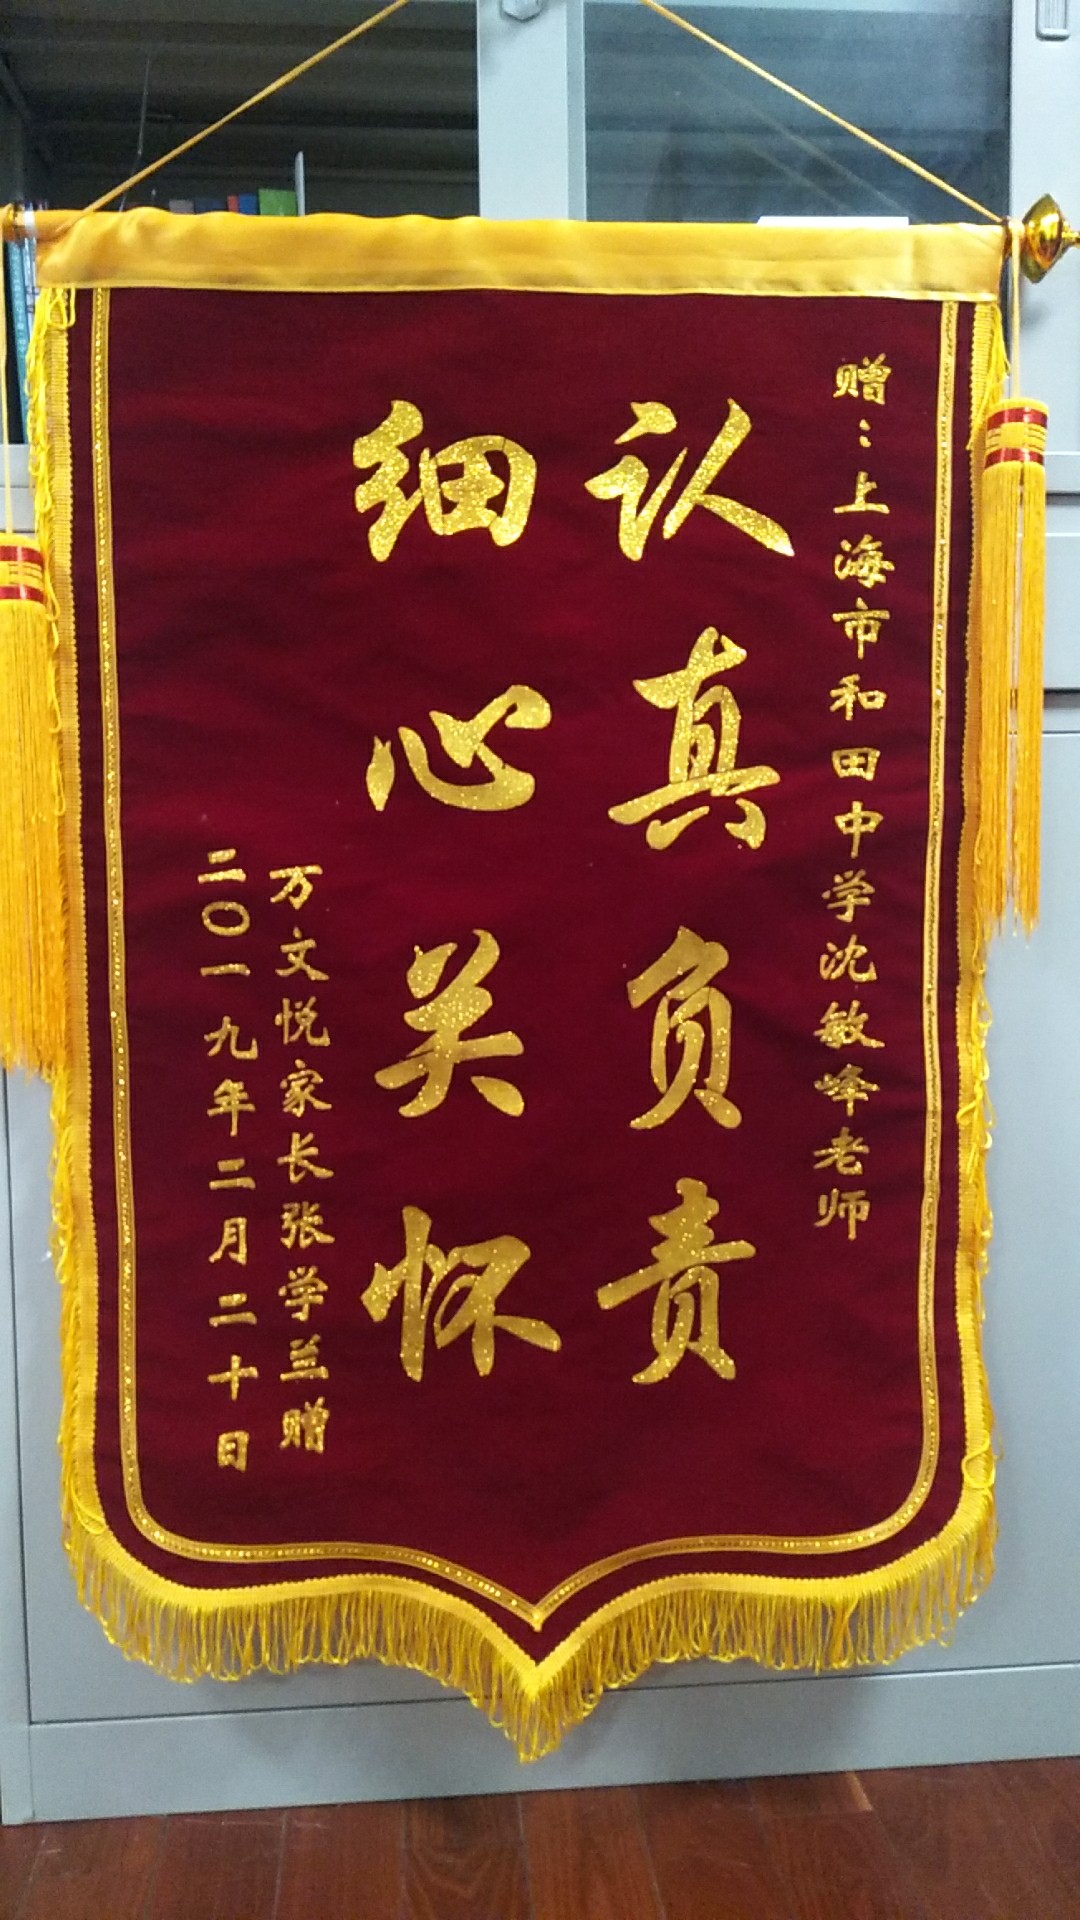 赠:上海市和田中学沈敏峰老师
认真负责
细心关怀
万文悦家长张学兰赠
二〇一九年二月二十日